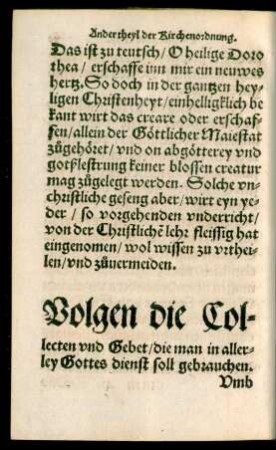 Ander theyl der Kirchenordnung.
Das ist zu teutsch / O heilige Doro
thea / erschaffe inn mir ein neuwes
hertz. So doch in der gantzen hey-
ligen Christenheyt / einhelligklich be
kant wirt das creare oder erschaf-
fen / allein der Göttlicher Maiestat
zůgehöret / vnd on abgötterey vnd
gotßlestrung keiner blossen creatur
mag zůgelegt werden. Solche vn-
christliche geseng aber / wirt eyn ye-
der / so vorgehenden vnderricht /
von der Christlichē lehr fleissig hat
eingenomen / wol wissen zu vrthei-
len / vnd zůuermeiden.
Volgen die Col-
lecten vnd Gebet / die man in aller-
ley Gottes dienst soll gebrauchen.
Vmb